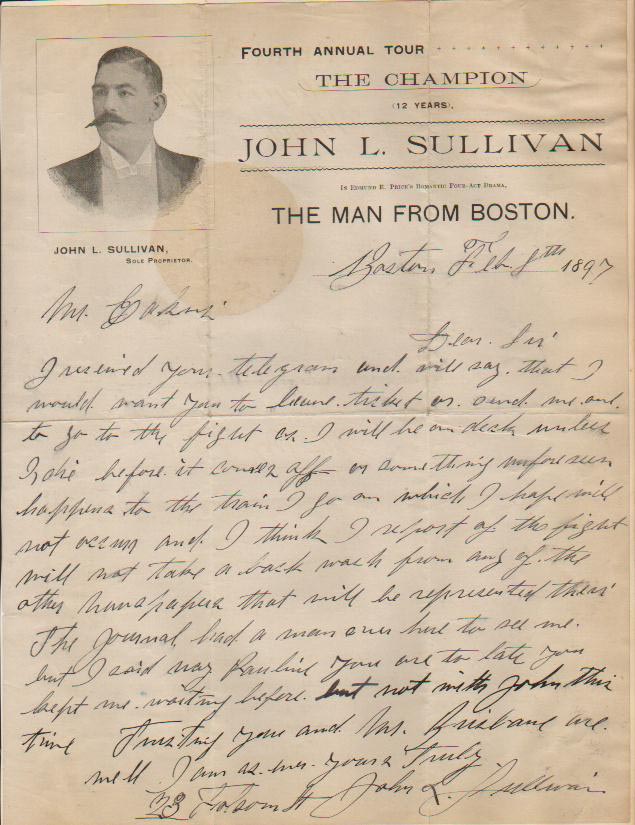 FOURTH ANNUAL TOUR
THE CHAMPION
(12 YEARS),
JOHN L. SULLIVAN
IN EDMUND E. PRICE'S ROMANTIC FOUR-ACT DRAMA,
THE MAN FROM BOSTON.
JOHN L. SULLIVAN,
SOLE PROPRIETOR.
Boston Feb. 8th 1897
Mr.
Dear. Sir
I received your telegram and will say that I
would want you to leave ticket or send me one
to go to the fight as I will be on deck unless
I die before it comes off or something unforeseen
happens to the train I go on which I hope will
not occur and I think I report of the fight
will not take a back wash from any of the
other newspapers that will be represented their
The Journal had a man over here to see me.
but I said nay Pauline you are to late you
kept me waiting before but not with John this
time Trusting you and Mr. Brisbane are
well I am as ever yours Truly
John L. Sullivan
23 Folsom St